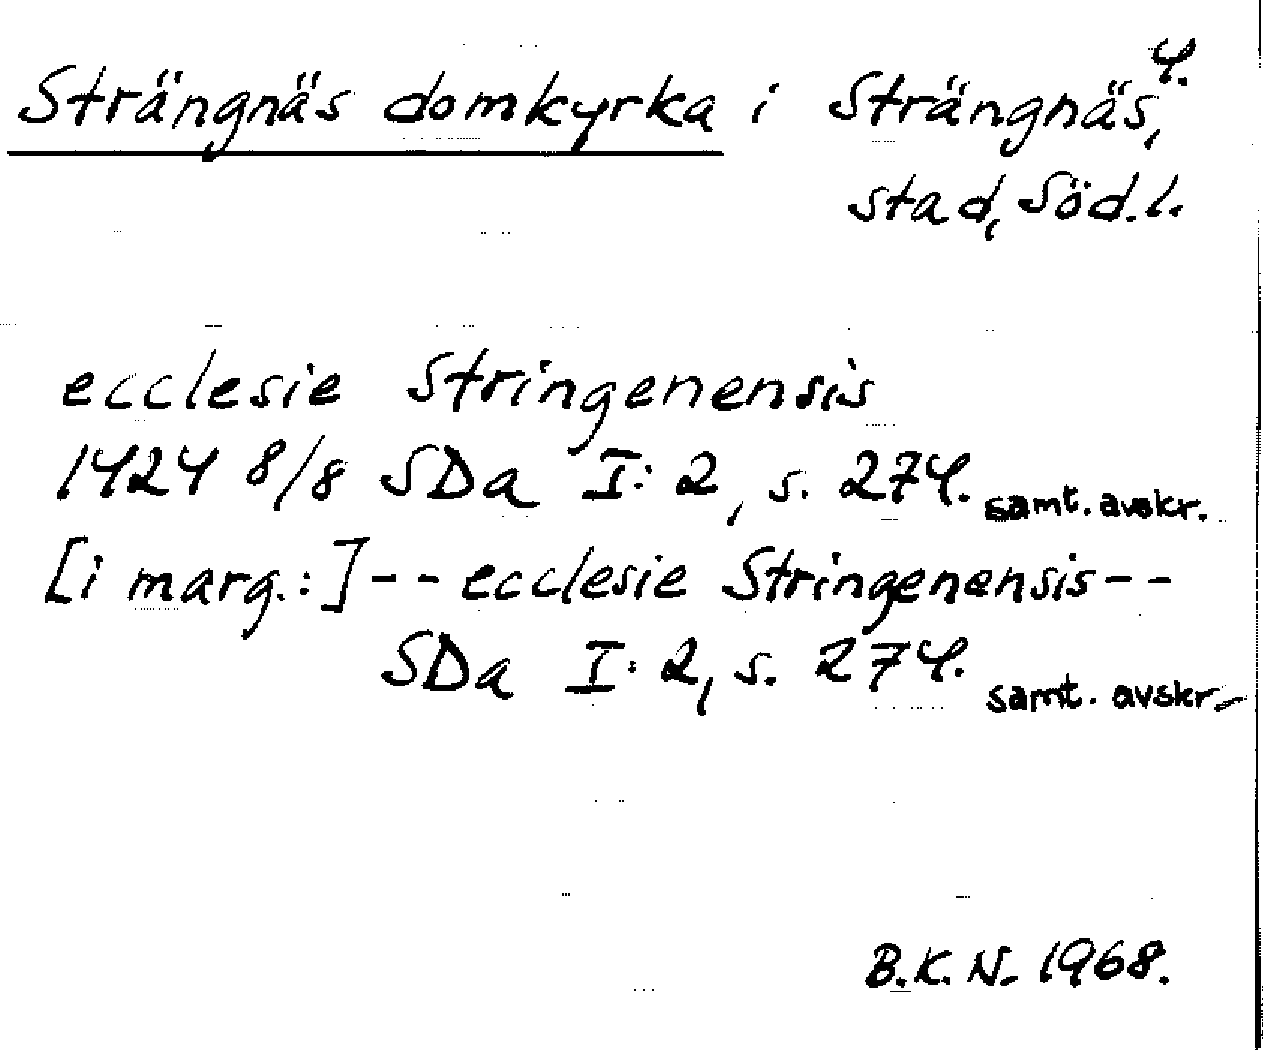 4.
Strängnäs domkyrka i Strängnäs,
stad, Söd.l.
ecclesie Stringenensis
1424 8/8 SDa I:2, s. 274. samt. avskr.
[i marg.:] -- ecclesie Stringenensis --
SDa I:2, s. 274. samt. avskr.
B.K.N. 1968.